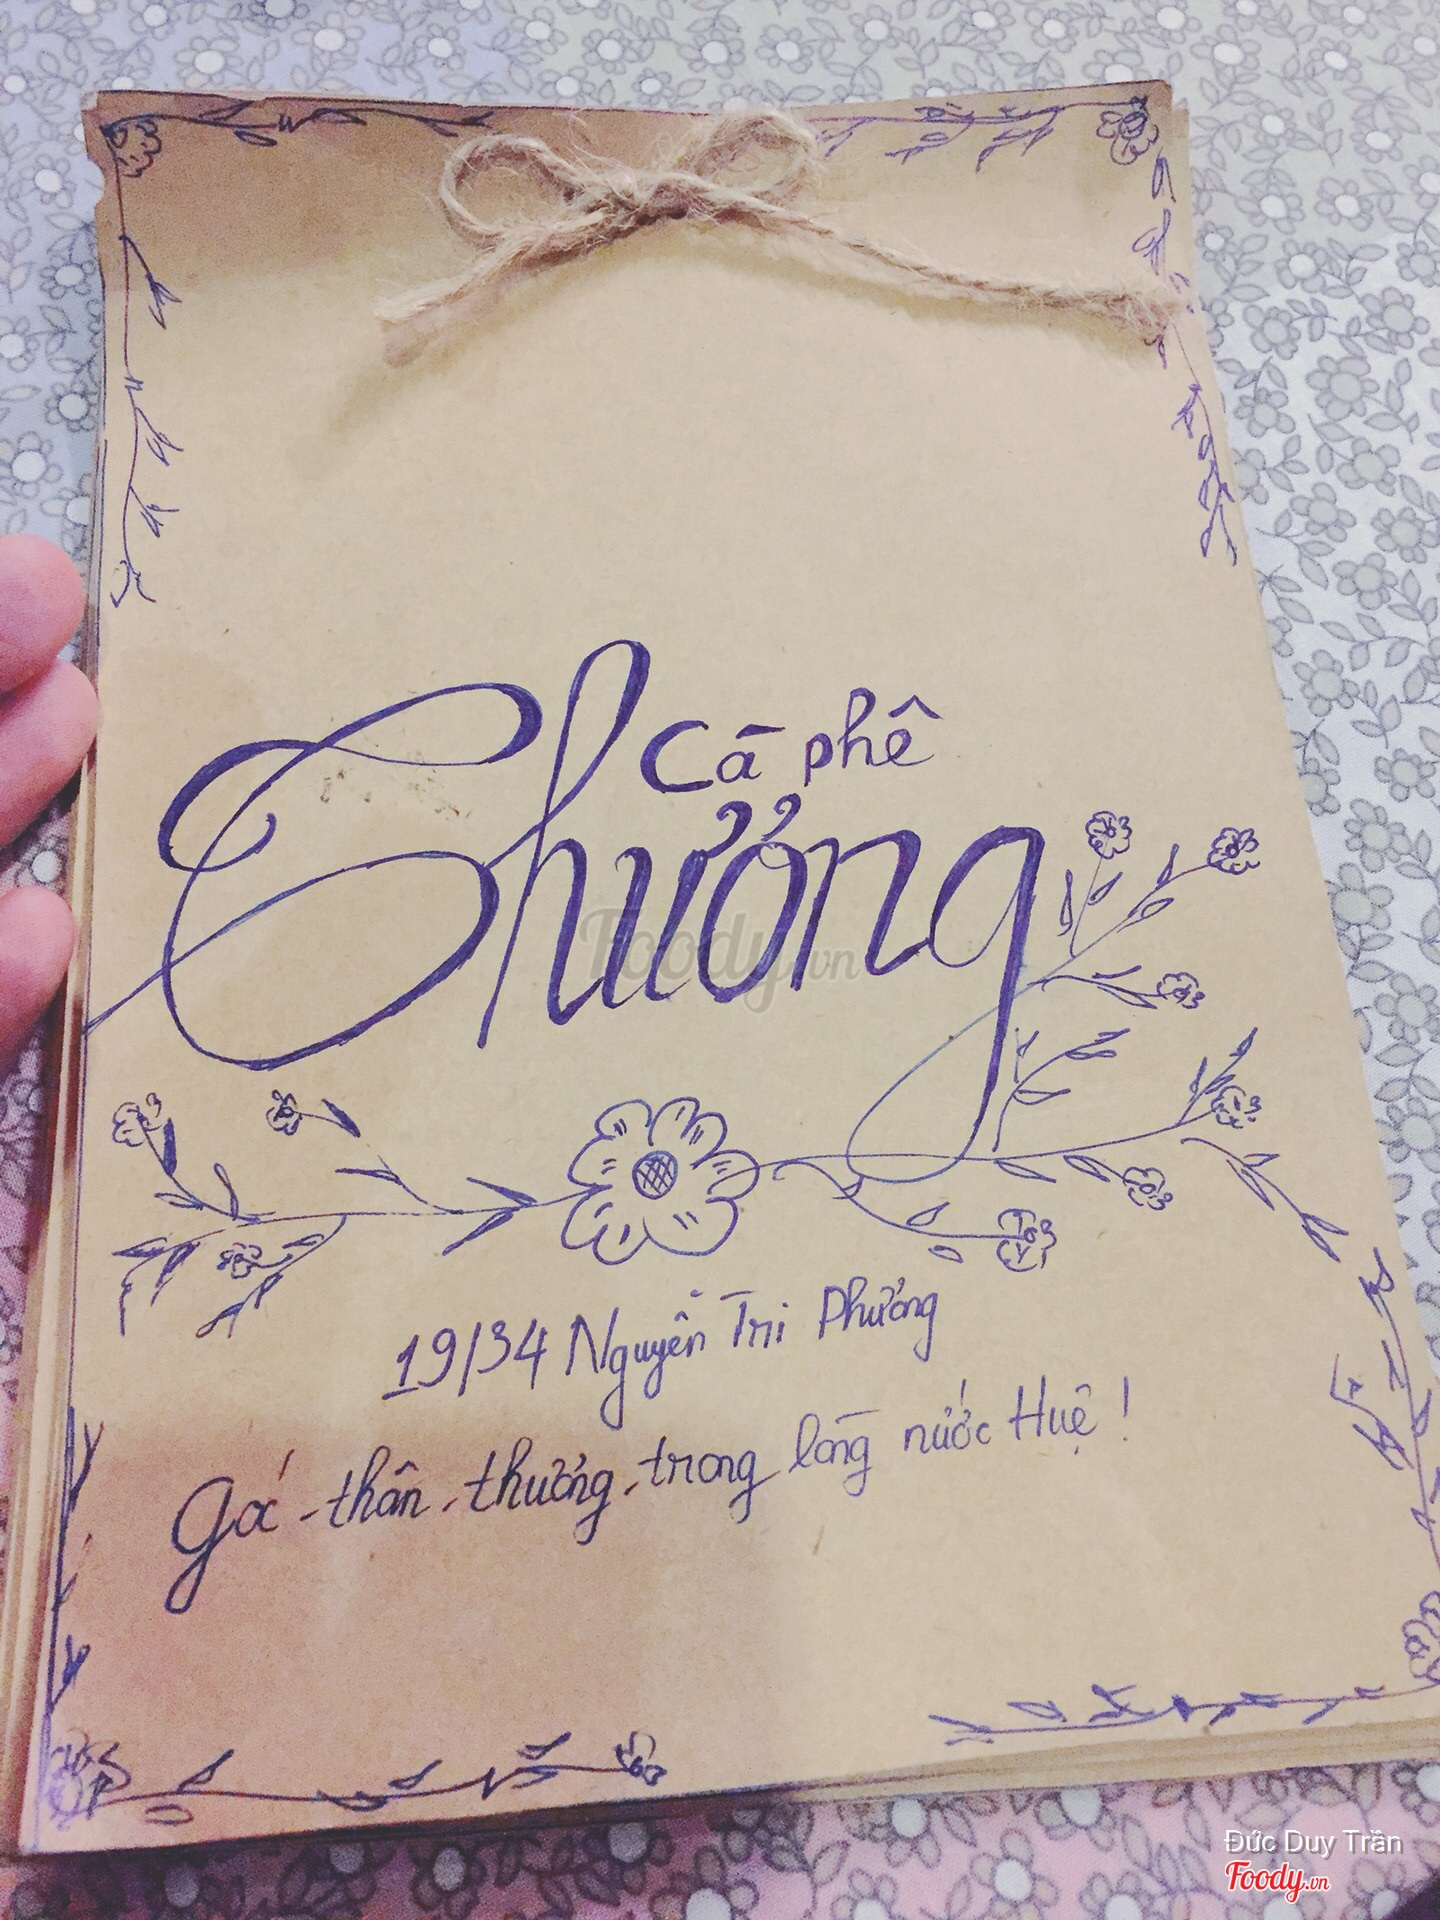 Cà phê
Thương
19/34 Nguyễn Tri Phương
Góc thân thương trong lòng nước Huệ!
Foody.vn
Đức Duy Trần
Foody.vn